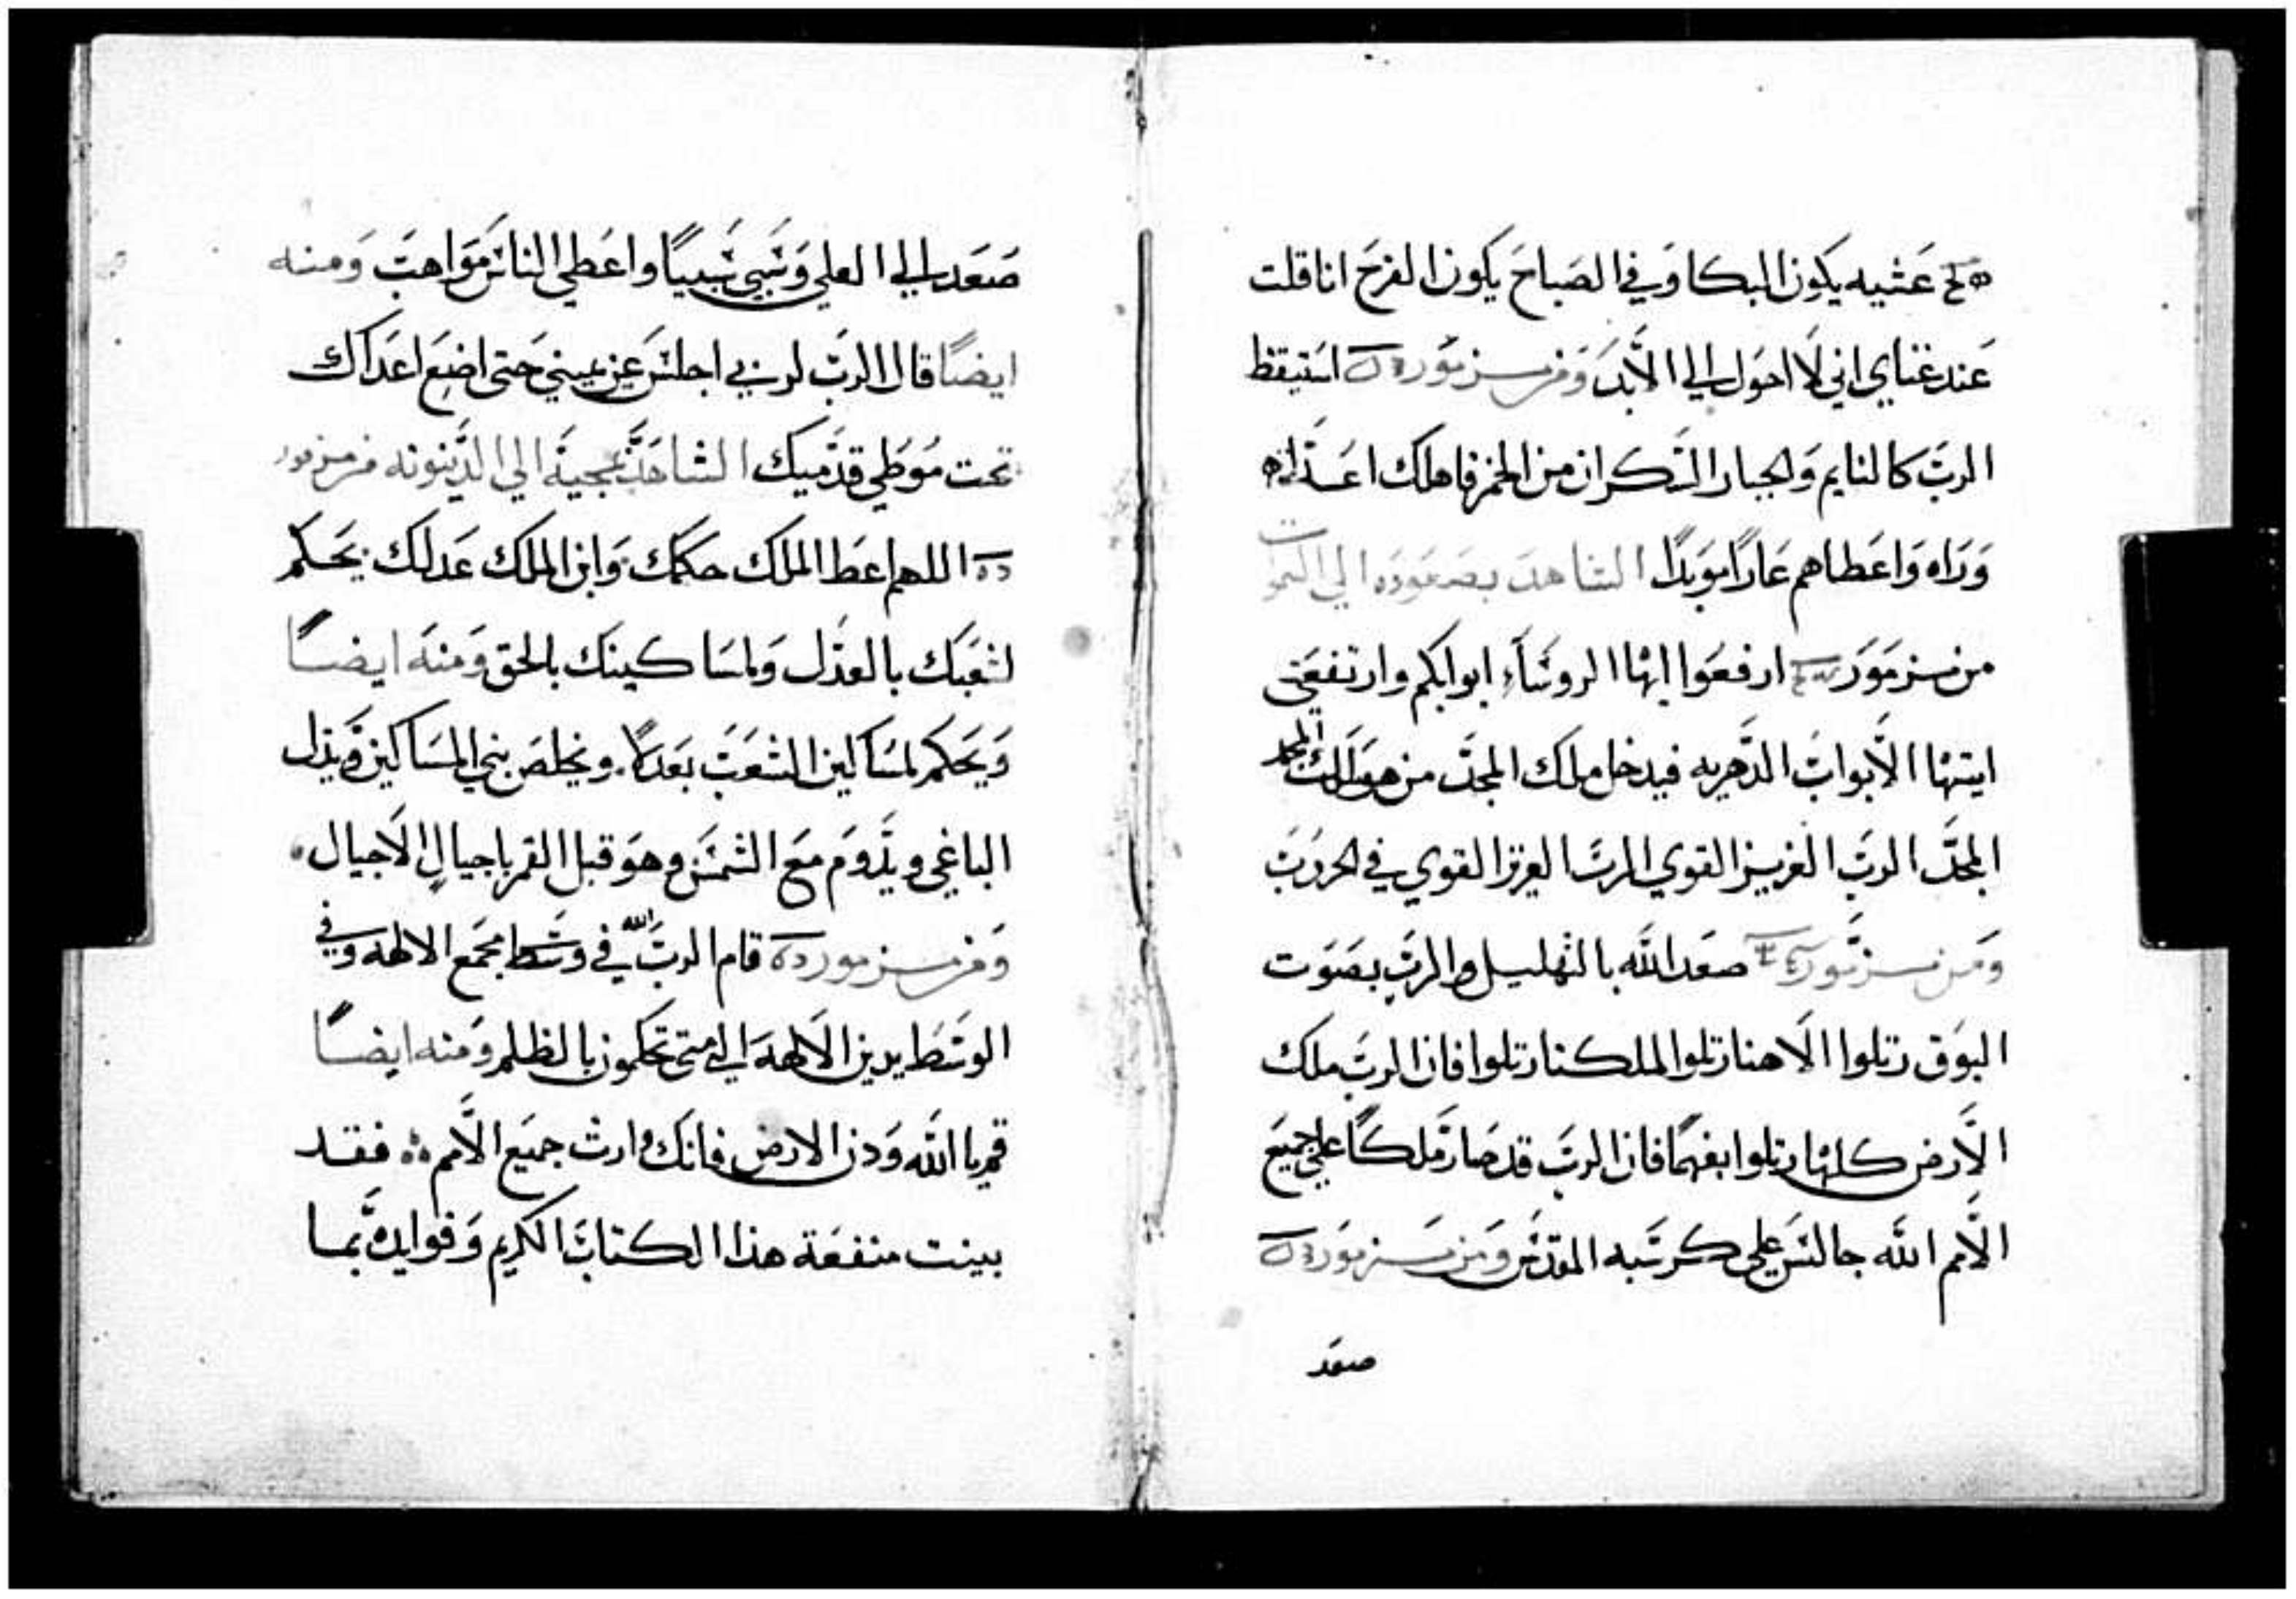 عَشيه يكون البكا وَفي الصَباحَ يكون الفرَح انا قلت
عَند غناي اني لَا احوَل الي الاَّبدَ وَمن مزمَور استيقظ
الربَ كالنايم وَالجبار السَكران من الخمر فاهلك اعَداه
وَراه وَاعَطاهم عَارًا موَبدًا الشاهدَ بصَعَودَه الي السَموات
من مزمَوَر ارفعَوا ايهُا الروسَاَء ابوابكم وارتفعَي
ايتهُا الاَّبوابَ الدَّهريه فيدخل ملك المجدَ من هوَ ملك المجد
المجدَ الربَ العَزيز القوي الربَ العزيز القوي في الحروَبَ
وَمَن مزمَّور صعَد اللَه بالتهليل والربَ بصَوَت
البوَق رتلوا الَاهنا رتلوا لملكنا رتلوا فان الربَ ملك
الاَّرض كلهُا رتلوا بفهمًا فان الربَ قد صَار مَلكًا علي جميَع
الاَّمم اللَه جالسَ علي كرسَيه المقدسَ وَمن مزموَر
صعَد
صَعَد الي العلي وَسَبي سَبيًا واعَطي الناسَ موَاهبَ وَمنه
ايضًا قال الربَ لربي اجلسَ عَن يميني حَتي اضعَ اعَداك
تحت مُوَطي قدَميك الشاهدَ بمجيهَ الي الدَّينونه من مزمور
اللهم اعَط الملك حكمَك وَابن الملك عَدلك يحَكم
لشعَبَك بالعدَل وَلمسَاكينك بالحق وَمنهَ ايضًا
وَيَحَكم لمسَاكين الشعَبَ بعَدلًا ويخلصَ بني المسَاكين وَيذل
الباغي ويدَوَم معَ الشمسَ وهوَ قبل القمر باجيالِ الَاجيال
وَمن مزمور قام الربَ الله في وسَط مجمَع الالهه وَفي
الوسَط يدين الَالههَ الي متي تحَكمون بالظلم وَمنه ايضًا
قم يا اللَه وَدن الارض فانكَ وارث جميَع الاَّمم فقد
بينت منفعَة هذا الكتابَ الكريم وَفوايدَه بمَا